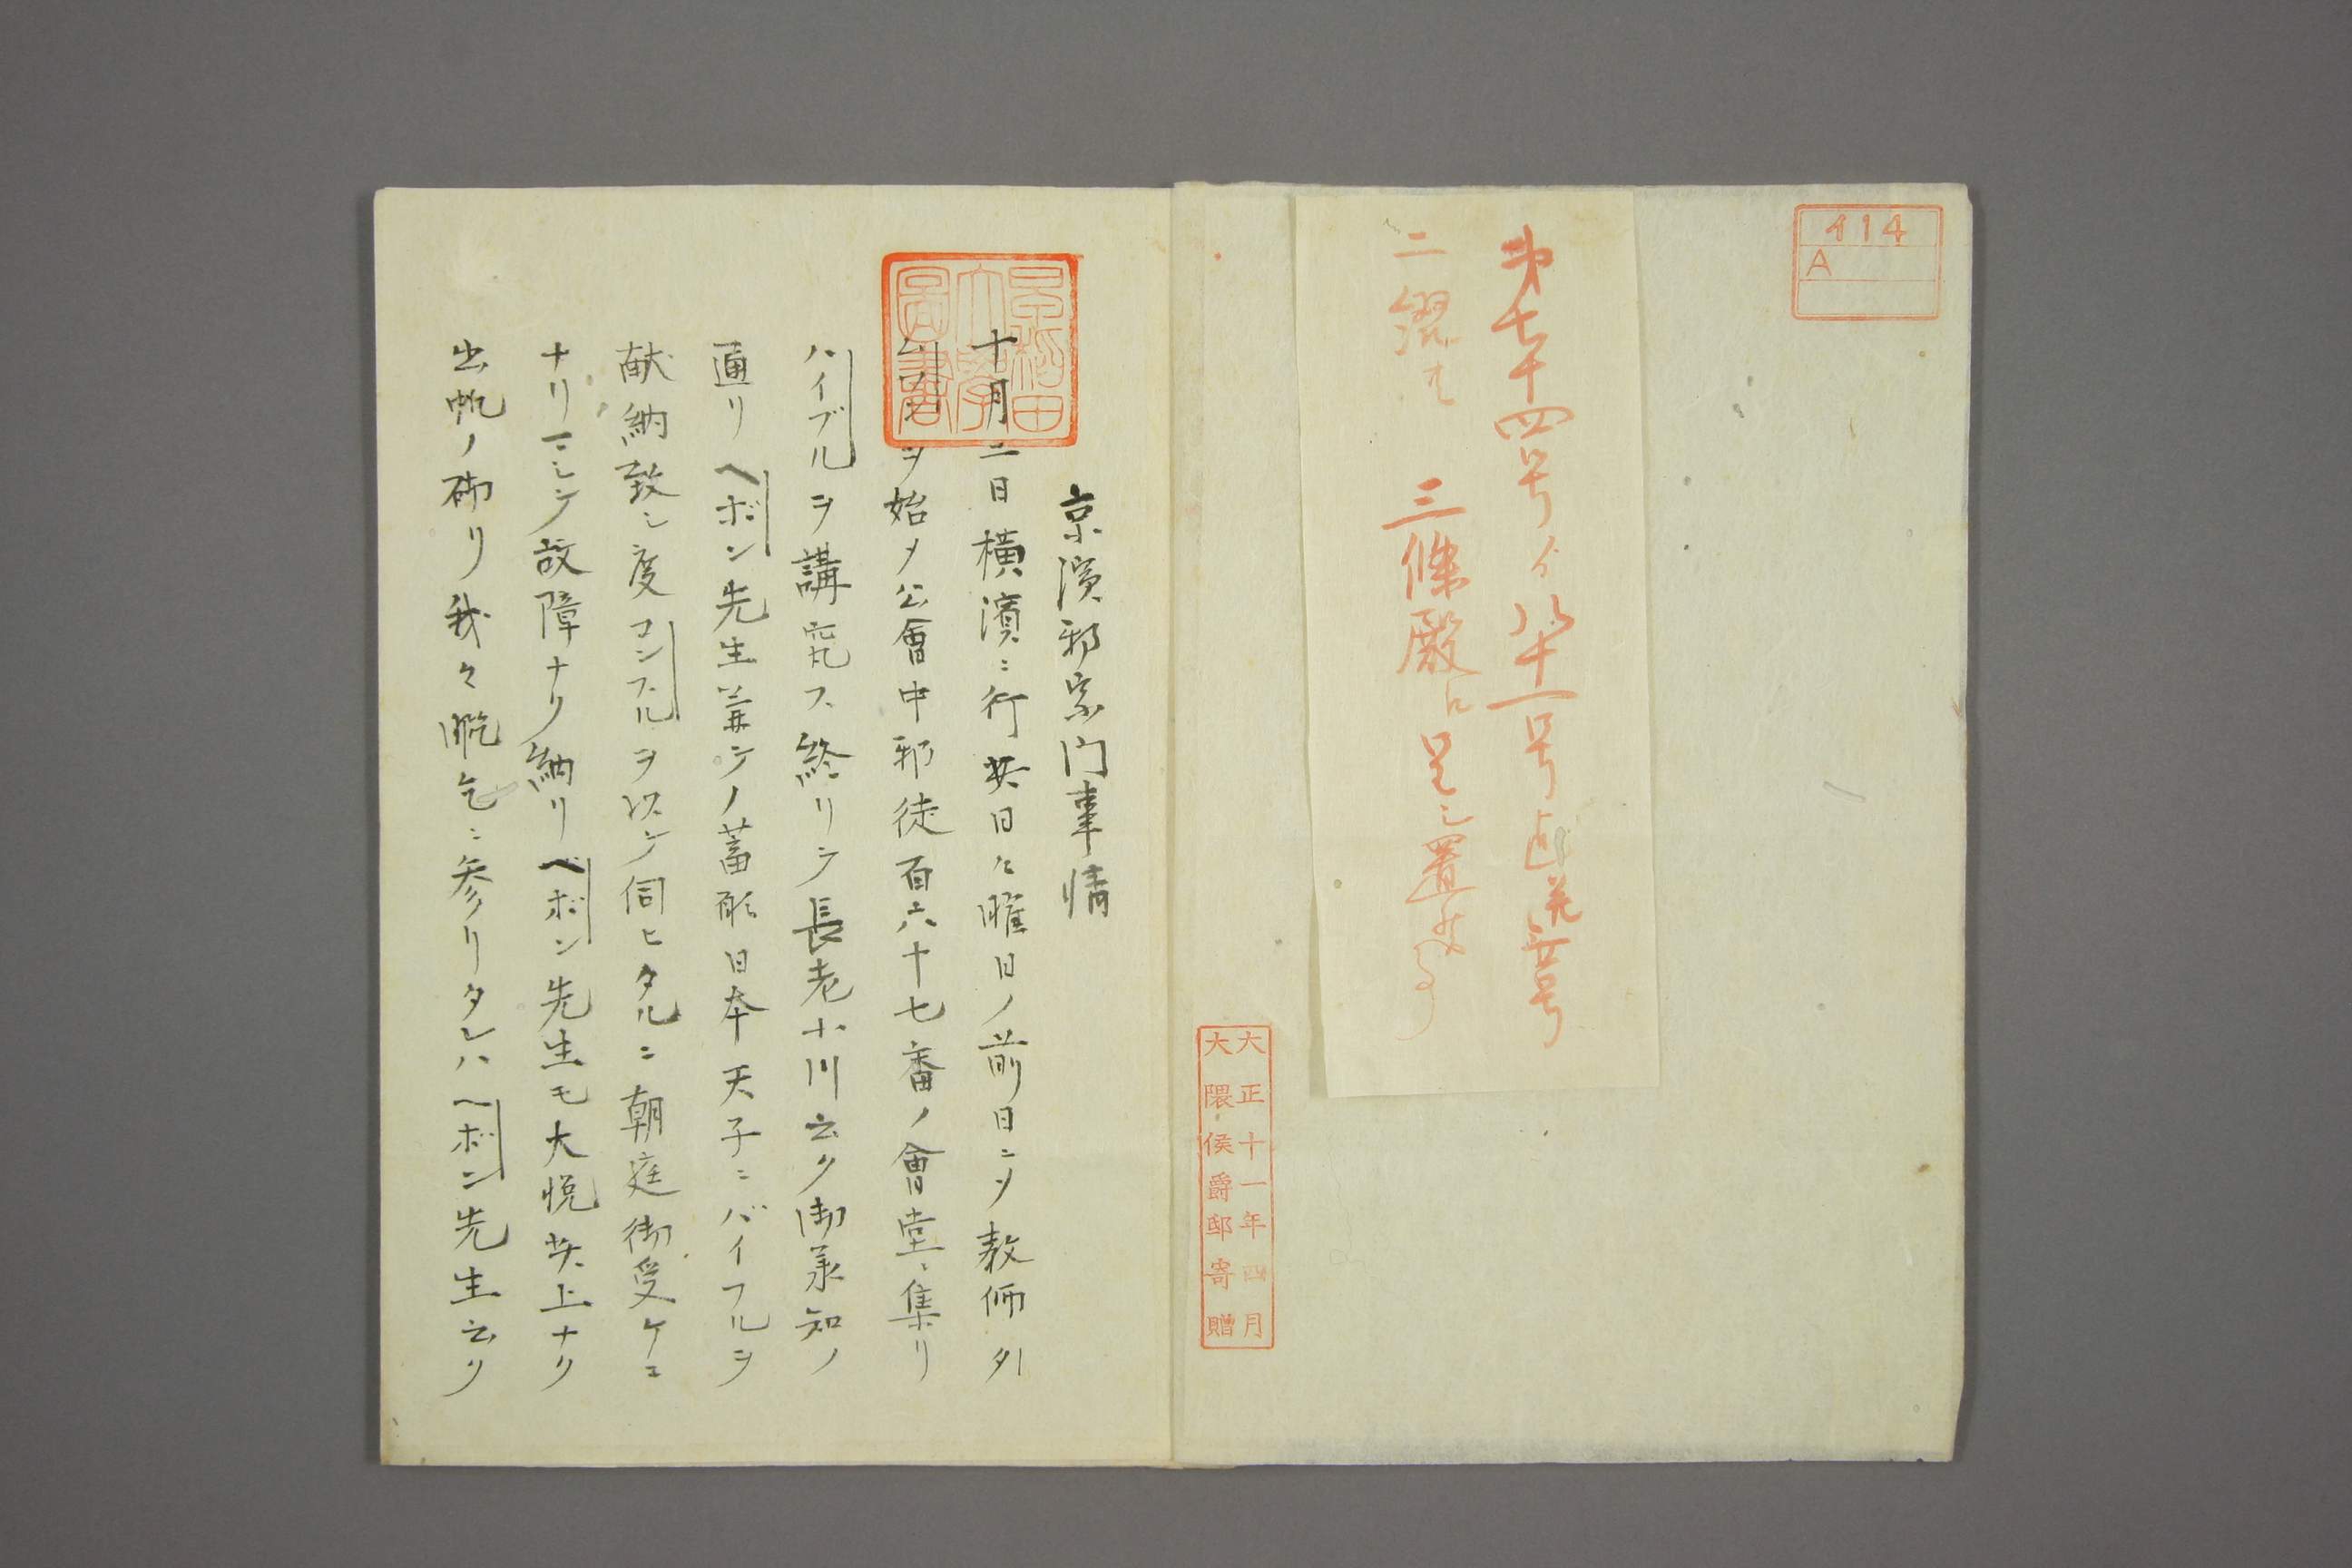 イ14
A
第七十四号ゟ八十一号迄並無号
二綴 三條殿ニ呈シ置
大正十一年四月
大隈侯爵邸寄贈
早稲田大學圖書
京濱邪宗門事情
十月二日横濱ニ行其日ハ曜日ノ前日ニメ教師タ
ヲ始メ公會中邪徒百六十七番ノ會堂ニ集リ
ハイブルヲ講究ス終リテ長老小川云ク御承知ノ
通リヘボン先生兼テノ蓄願日本天子ニバイフルヲ
献納致シ度コンフルヲ以テ伺ヒタルニ朝庭御受ケニ
ナリマシテ故障ナク納リヘボン先生モ大悦其上ナク
出帆ノ砌リ我々暇乞ニ参リタレハヘボン先生云ク